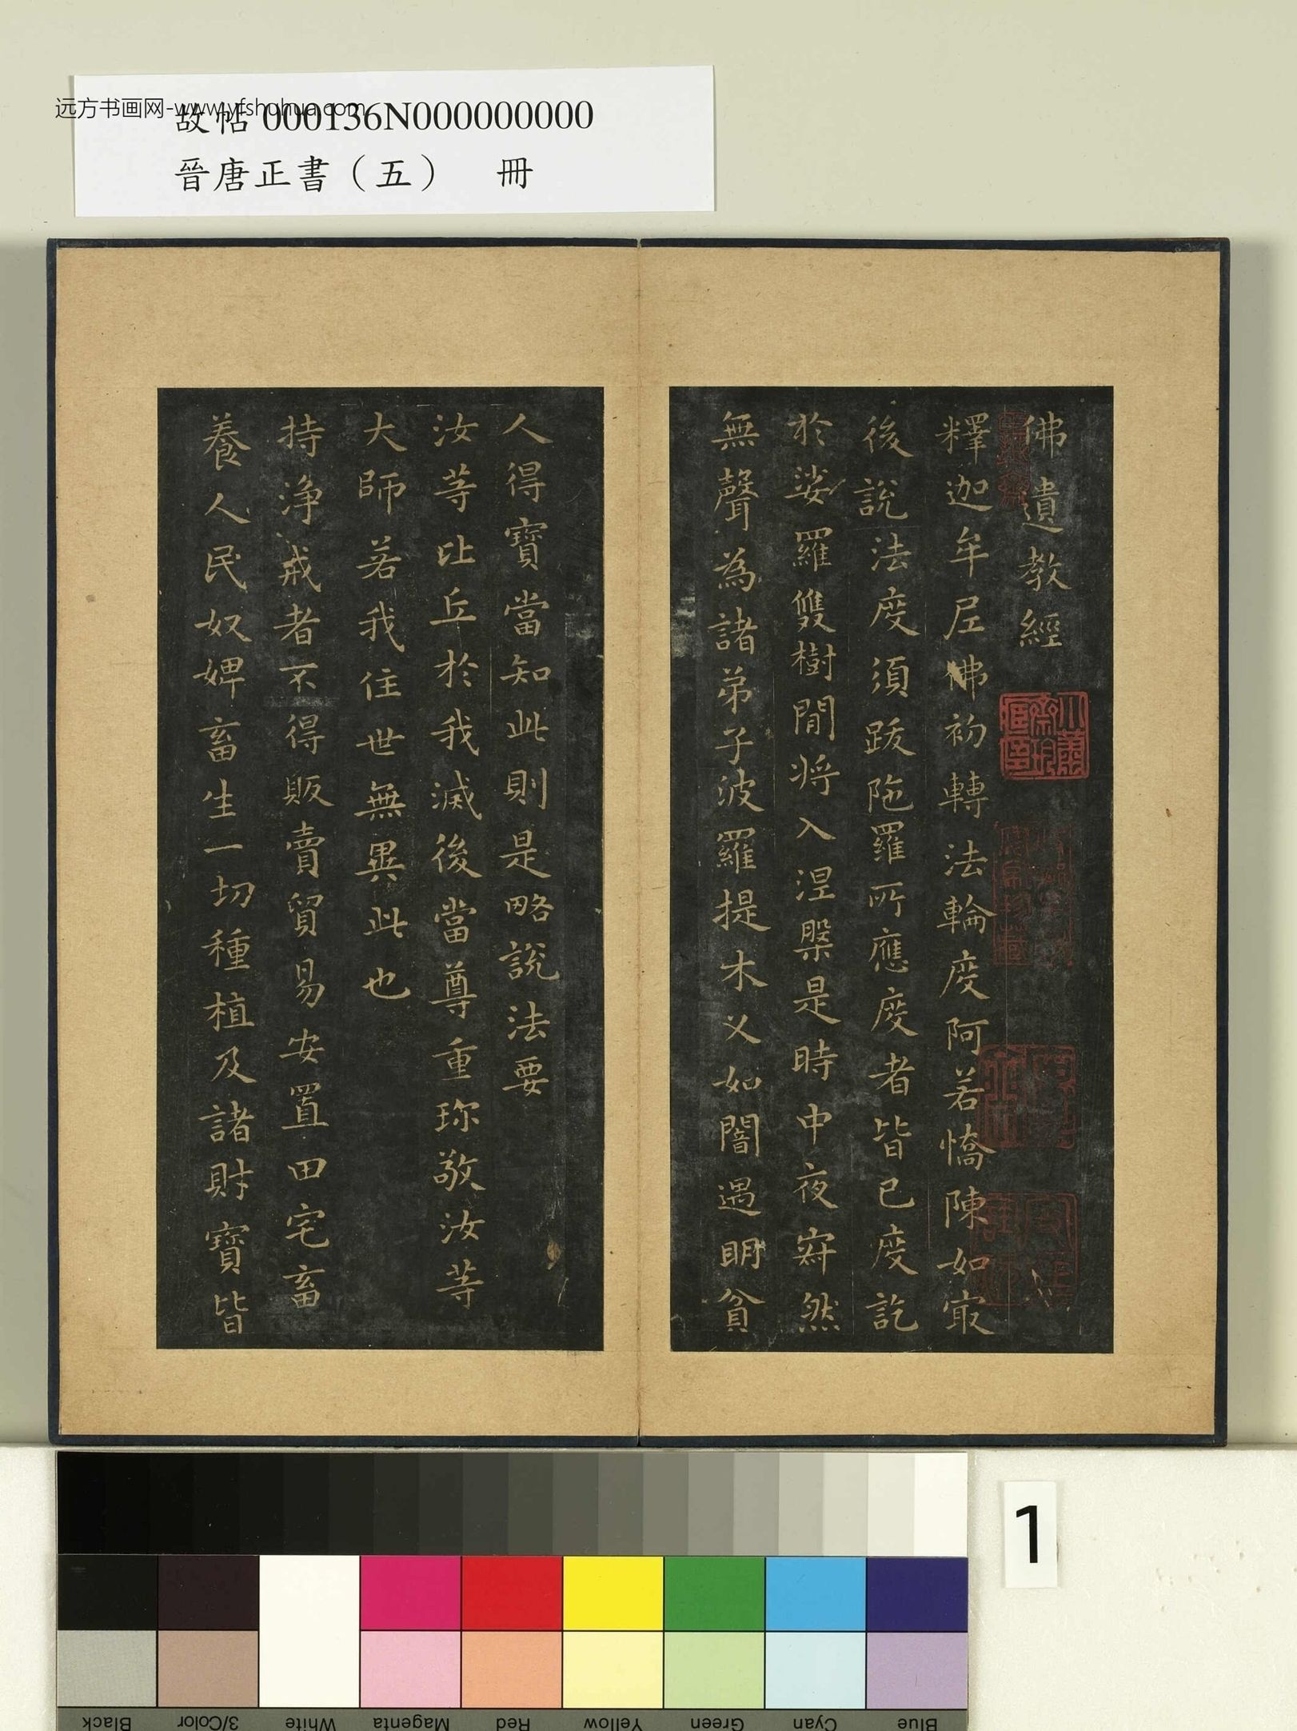 远方书画网-www.yfshuhua.com
故帖 000136N000000000
晉唐正書（五） 冊
佛遺教經
釋迦牟尼佛初轉法輪度阿若憍陳如㝡
後說法度須跋陁羅所應度者皆已度訖
於娑羅雙樹閒將入涅槃是時中夜㝛然
無聲為諸弟子波羅提木乂如闇遇明貧
人得寶當知此則是略說法要
汝等比丘於我滅後當尊重珎敬汝等
大師若我住世無異此也
持淨戒者不得販賣貿易安置田宅畜
養人民奴婢畜生一切種植及諸財寶皆
1
Black
3/Color
White
Magenta
Red
Yellow
Green
Cyan
Blue